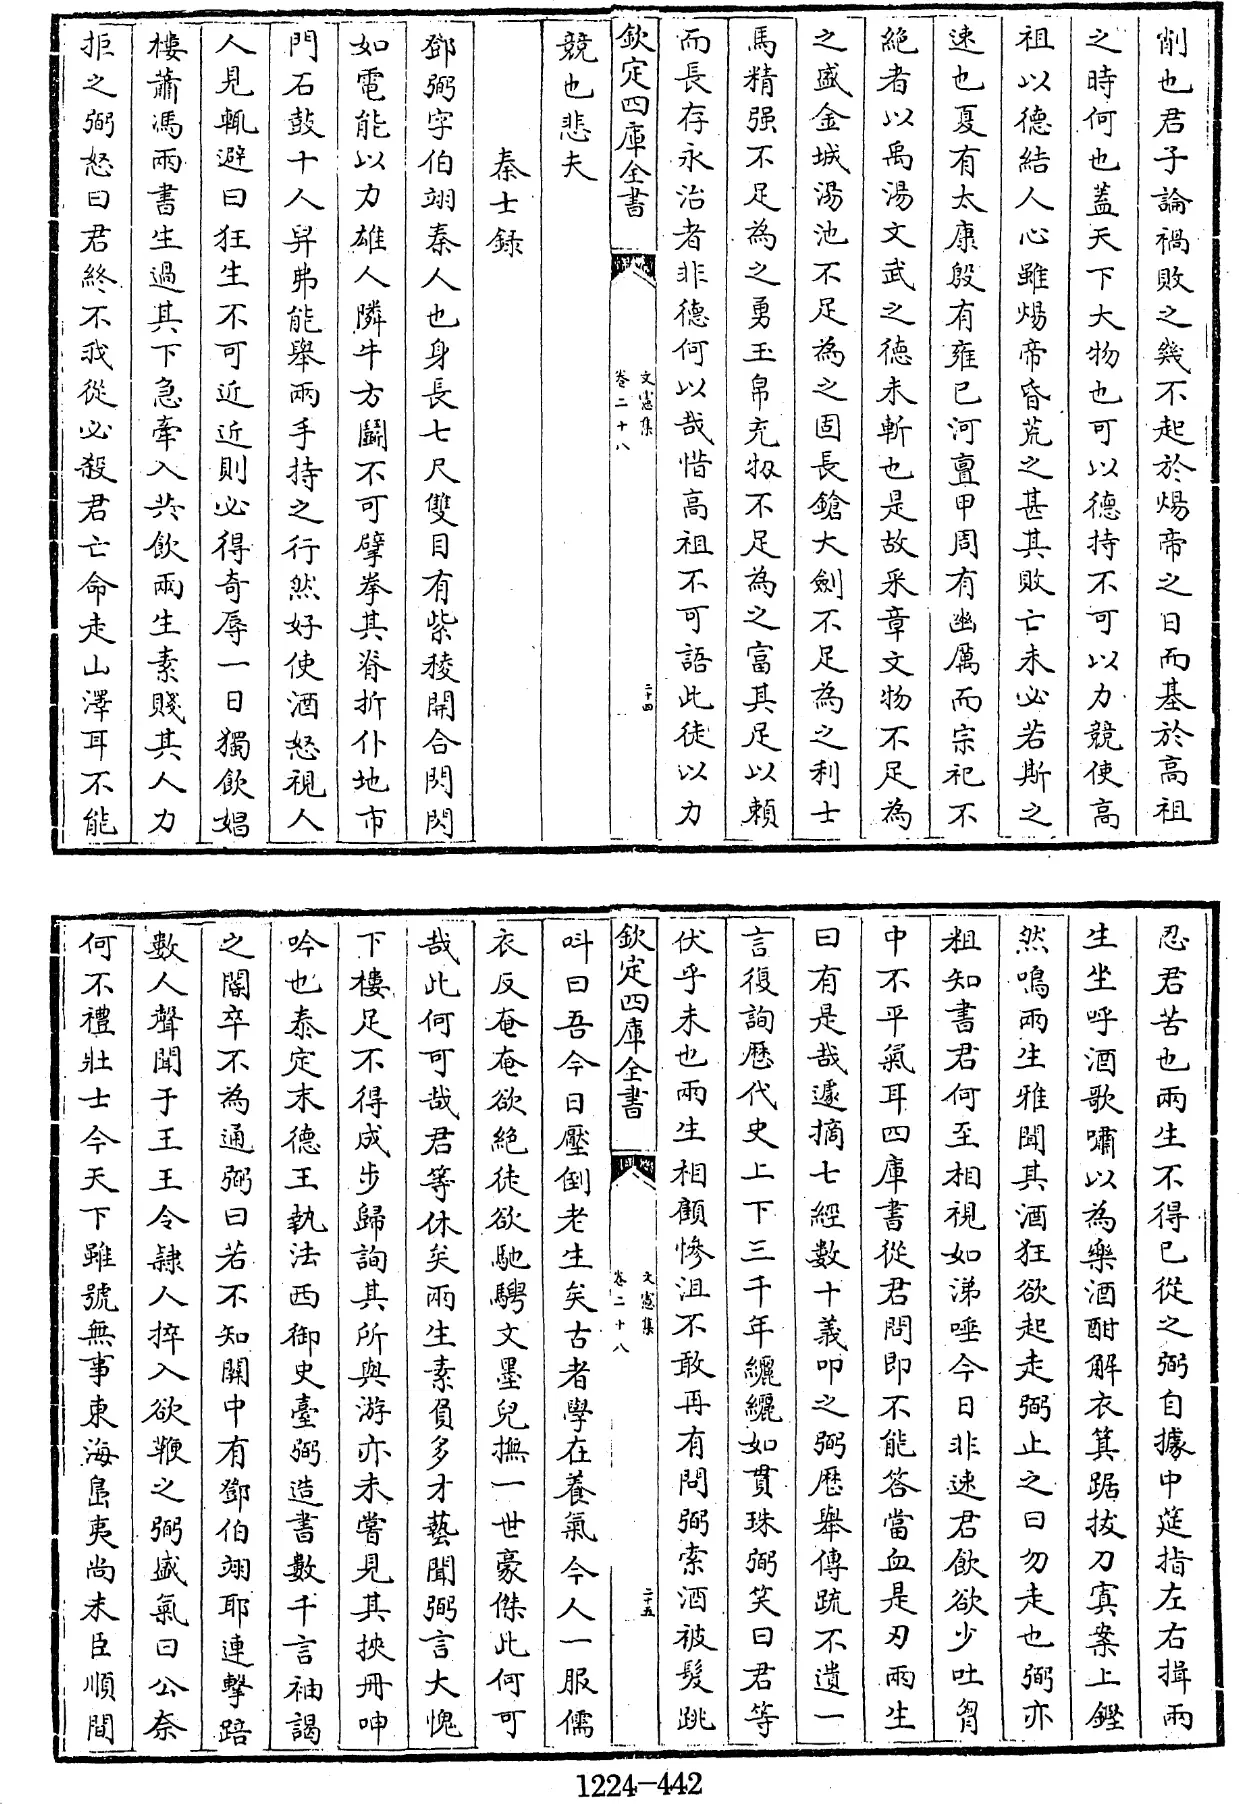 削也君子論禍敗之幾不起於煬帝之日而基於高祖
之時何也蓋天下大物也可以德持不可以力競使高
祖以德結人心雖煬帝昏荒之甚其敗亡未必若斯之
速也夏有太康殷有雍已河亶甲周有幽厲而宗祀不
絶者以禹湯文武之德未斬也是故采章文物不足為
之盛金城湯池不足為之固長鎗大劍不足為之利士
馬精强不足為之勇玉帛充牣不足為之富其足以頼
而長存永治者非德何以哉惜高祖不可語此徒以力
欽定四庫全書
文憲集
卷二十八
二十四
競也悲夫
秦士録
鄧弼字伯翊秦人也身長七尺雙目有紫稜開合閃閃
如電能以力雄人隣牛方鬭不可擘拳其脊折仆地市
門石鼓十人舁弗能舉兩手持之行然好使酒怒視人
人見輒避曰狂生不可近近則必得奇辱一日獨飲娼
樓蕭馮兩書生過其下急牽入共飲兩生素賤其人力
拒之弼怒曰君終不我從必殺君亡命走山澤耳不能
忍君苦也兩生不得已從之弼自據中筵指左右揖兩
生坐呼酒歌嘯以為樂酒酣解衣箕踞拔刀寘案上鏗
然鳴兩生雅聞其酒狂欲起走弼止之曰勿走也弼亦
粗知書君何至相視如涕唾今日非速君飲欲少吐胷
中不平氣耳四庫書從君問即不能答當血是刃兩生
曰有是哉遽摘七經數十義叩之弼歴舉傳疏不遺一
言復詢歴代史上下三千年纚纚如貫珠弼笑曰君等
伏乎未也兩生相顧慘沮不敢再有問弼索酒被髮跳
欽定四庫全書
文憲集
卷二十八
二十五
呌曰吾今日壓倒老生矣古者學在養氣今人一服儒
衣反奄奄欲絶徒欲馳騁文墨兒撫一世豪傑此何可
哉此何可哉君等休矣兩生素負多才藝聞弼言大愧
下樓足不得成步歸詢其所與游亦未嘗見其挾冊呻
吟也泰定末德王執法西御史臺弼造書數千言袖謁
之閽卒不為通弼曰若不知關中有鄧伯翊耶連擊踣
數人聲聞于王王令隷人捽入欲鞭之弼盛氣曰公奈
何不禮壯士今天下雖號無事東海島夷尚未臣順間
1224—442